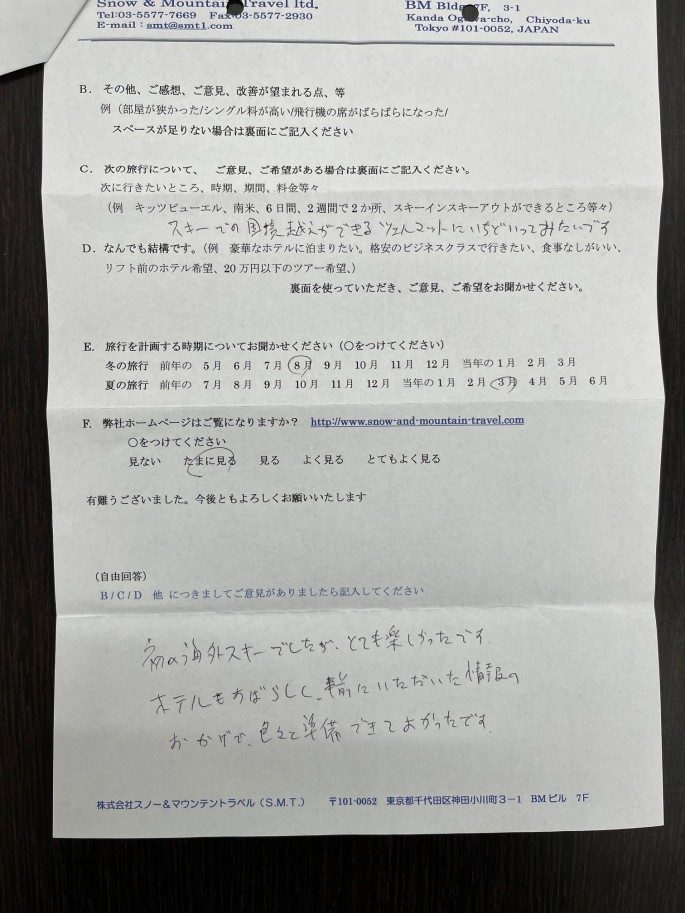 Snow & Mountain Travel ltd.
BM Bldg 7F, 3-1
Tel:03-5577-7669 Fax:03-5577-2930
Kanda Ogawa-cho, Chiyoda-ku
E-mail : smt@smt1.com
Tokyo #101-0052, JAPAN
B. その他、ご感想、ご意見、改善が望まれる点、等
例（部屋が狭かった/シングル料が高い/飛行機の席がばらばらになった/
スペースが足りない場合は裏面にご記入ください
C. 次の旅行について、 ご意見、ご希望がある場合は裏面にご記入ください。
次に行きたいところ、時期、期間、料金等々
（例 キッツビューエル、南米、6日間、2週間で2か所、スキーインスキーアウトができるところ等々）
スキーでの国境越えができるツェルマットにいちどいってみたいです
D. なんでも結構です。（例 豪華なホテルに泊まりたい。格安のビジネスクラスで行きたい、食事なしがいい、
リフト前のホテル希望、20万円以下のツアー希望、）
裏面を使っていただき、ご意見、ご希望をお聞かせください。
E. 旅行を計画する時期についてお聞かせください（○をつけてください）
冬の旅行 前年の 5月 6月 7月 8月 9月 10月 11月 12月 当年の1月 2月 3月
夏の旅行 前年の 7月 8月 9月 10月 11月 12月 当年の1月 2月 3月 4月 5月 6月
F. 弊社ホームページはご覧になりますか？ http://www.snow-and-mountain-travel.com
○をつけてください
見ない たまに見る 見る よく見る とてもよく見る
有難うございました。今後ともよろしくお願いいたします
（自由回答）
B / C / D 他 につきましてご意見がありましたら記入してください
初の海外スキーでしたが、とても楽しかったです.
ホテルもすばらしく、事前にいただいた情報の
おかげで、色々と準備できてよかったです.
株式会社スノー＆マウンテントラベル（S.M.T.） 〒101-0052 東京都千代田区神田小川町３－１ BMビル 7F